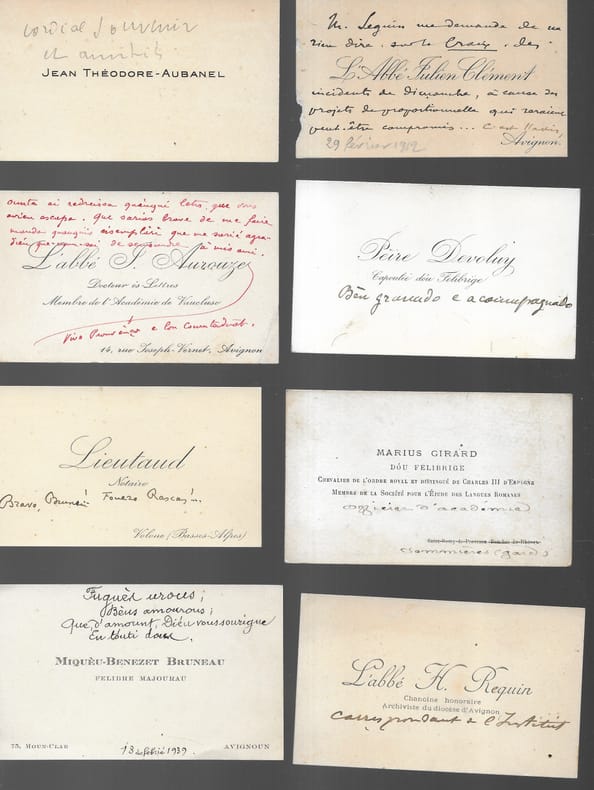 cordial souvenir
et amitiés
JEAN THÉODORE-AUBANEL
M. Seguin me demande de ne
rien dire, sur la Croix, des
L'Abbé Julien Clément
incidents de Dimanche, à cause des
projets de proportionnelle qui seraient
peut-être compromis...
29 février 1912
Avignon.
que vous
avien escapa. Que sarias brave de me faire
manda quauquis eisemplàri que me sarié agra-
L'abbé J. Aurouze
Docteur ès Lettres
Membre de l'Académie de Vaucluse
Vivo Prouvènço e
14, rue Joseph-Vernet, Avignon
Pèire Devoluy
Capoulié dóu Felibrige
Bèn gramaado e acoumpagnado
Lieutaud
Notaire
Bravo, Bruneu! Fouero Rascas!..
Volone (Basses-Alpes)
MARIUS GIRARD
DÓU FELIBRIGE
CHEVALIER DE L'ORDRE ROYAL ET DISTINGUÉ DE CHARLES III D'ESPAGNE
MEMBRE DE LA SOCIÉTÉ POUR L'ÉTUDE DES LANGUES ROMANES
officier d'académie
Saint-Remy-de-Provence (Bouches-du-Rhône)
Sommières (Gard)
Fuguès urous;
Bèns amourous;
Que d'amount, Diéu vous sourigue
En touti dous.
MIQUÈU-BENEZET BRUNEAU
FELIBRE MAJOURAU
75, MOUN-CLAR
13 febrié 1939
AVIGNOUN
L'abbé H. Requin
Chanoine honoraire
Archiviste du diocèse d'Avignon
Correspondant de l'Institut